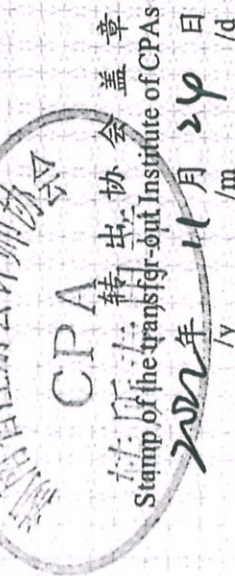 CPA
转出协会盖章
Stamp of the transfer-out Institute of CPAs
2022年 11月 24日
/y /m /d